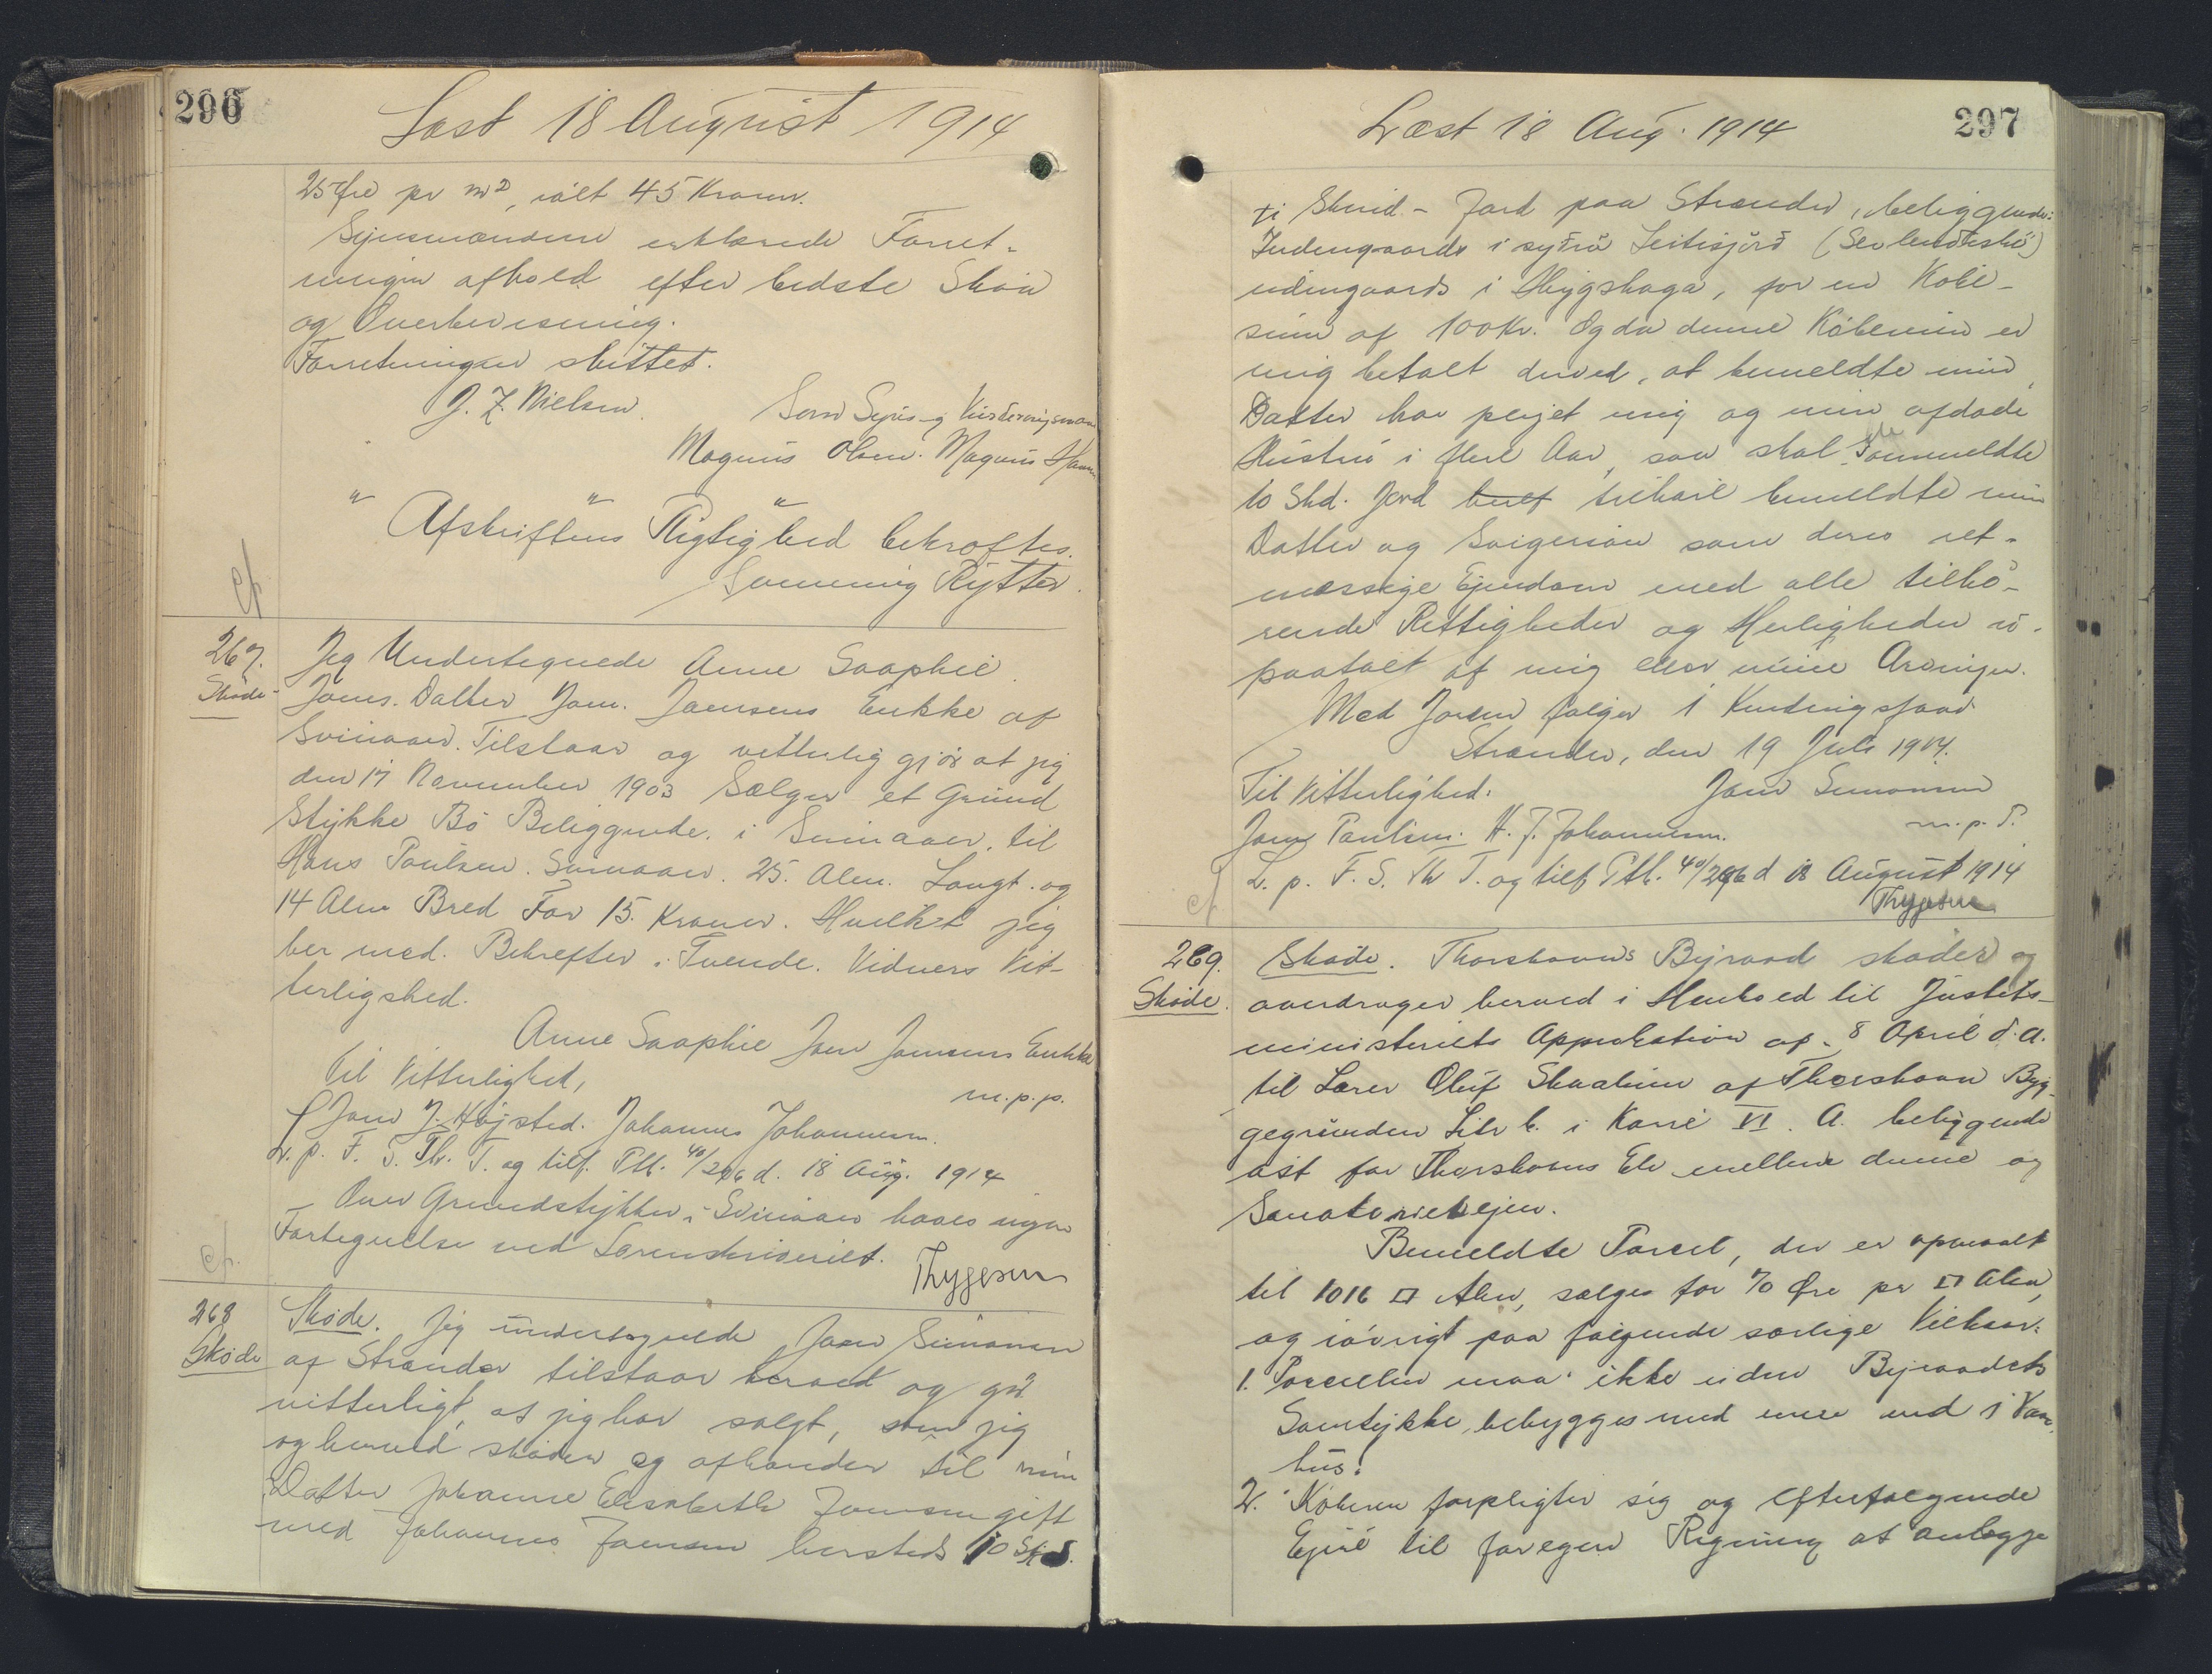 296
Læst 18 August 1914
25 Øre pr m², ialt 45 Kroner.
Synsmændene erklærede Forret-
ningen afhold efter bedste Skøn
og Overbevisning.
Forretningen sluttet.
J. Z. Nielsen. Som Syns og Vurderingsmænd
Magnus Olsen. Magnus
" " "
Afskriftens Rigtighed bekræftes.
Flemming Rytter.
cf
267.
Skøde
Jeg Undertegnede Anne Soaphie
Joens. Datter Joen. Joensens Enkke af
Svinaaer. Tilstaar og vitterlig gjør at jeg
den 17 November 1903 Sælger et Grund
Stykke Bø Beliggende. i Svinaaer. til
Hans Poulsen. Svinaaer. 25. Alen. Langt. og
14 Alen Bred For 15. Kroner. Hvilket jeg
her med. Bekrefter i Tvende. Vidners Vit-
terligshed.
Anne Soaphie Joen Joensens Enkke
m.p.p.
Til Vitterlighed,
Joen J. Højsted. Johannes Johannesen.
L. p. F. S. Th. T. og tilf. Ptb. 40/296 d. 18 Aug. 1914
Over Grundstykker i Svinaaer haves ingen
Fortegnelse ved Sorenskriveriet.
Thygesen
cf.
268
Skøde
Skøde. Jeg undertegnede Joen Simonsen
af Strænder tilstaar herved og gør
vitterligt, at jeg har solgt, som jeg
og herved skøder og afhænder til min
Datter Johanne Elisabeth Joensen gift
med Johannes Joensen hersteds 10 Skd.
297
Læst 18 Aug. 1914
ti Skind - Jord paa Strænder, beliggende:
Indengaards i syðra Leitisjørð
udengaards i Stiygshaga, for en Købe-
sum af 100 Kr. Og da denne Købesum er
mig betalt derved, at bemeldte min
Datter har plejet mig og min afdøde
Hustru i flere Aar, saa skal de Sommeldte
10 Skd. Jord tilhøre bemeldte min
Datter og Svigersøn som deres ret-
mæssige Ejendom med alle tilhø-
rende Rettigheder og Herligheder u-
paatalt af mig eller mine Arvinger.
Med Jorden følger 1 Kvudringsfaar
Strænder, den 19 Juli 1914.
Til Vitterlighed. Joen Simonsen
Joen Poulsen. H. J. Johannesen. m.p.P.
L. p. F. S. Th T. og tilf Ptb. 40/296 d 18 August 1914
Thygesen
cf
269.
Skøde.
Skøde. Thorshavns Byraad skøder og
overdrager herved i Henhold til Justits-
ministeriets Approbation af 8 April d. A.
til Lærer Oluf Skaalum af Thorshavn Byg-
gegrunden Litr b. i Karré VI. A. beliggende
øst for Thorshavns Elv mellem denne og
Sanatorievejen.
Bemeldte Parcel, der er opmaalt
til 1016 □ Alen, sælges for 70 Øre pr □ Alen,
og iøvrigt paa følgende særlige Vilkaar:
1. Parcellen maa ikke uden Byraadets
Samtykke, bebygges med mere end 1 Vaan
hus.
2. Køberen forpligter sig og efterfølgende
Ejere til for egen Regning at anlægge